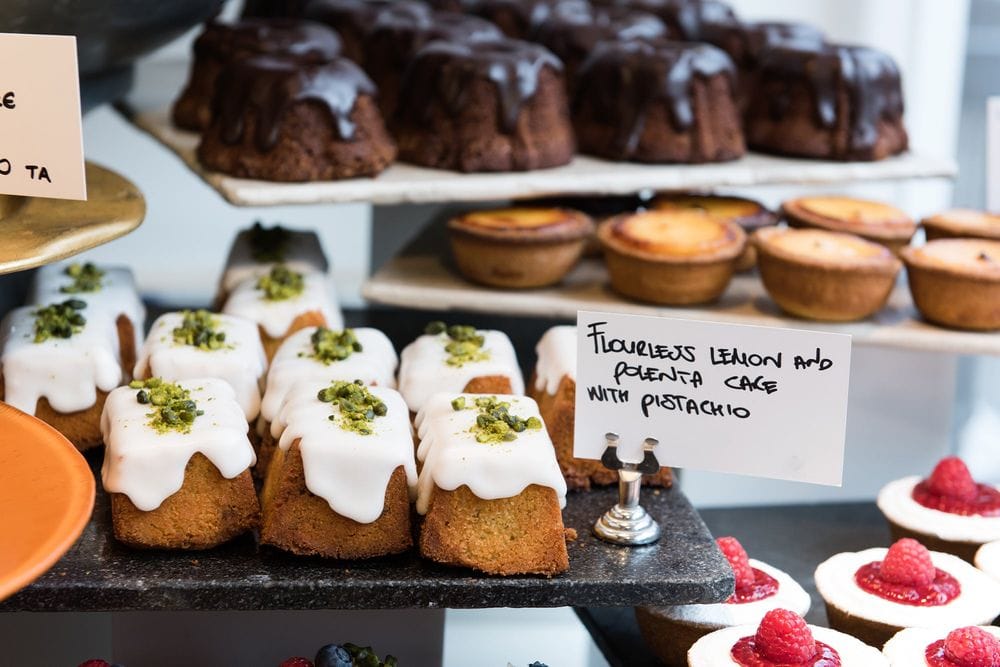 TA
FLOURLESS LEMON AND
POLENTA CAKE
WITH PISTACHIO